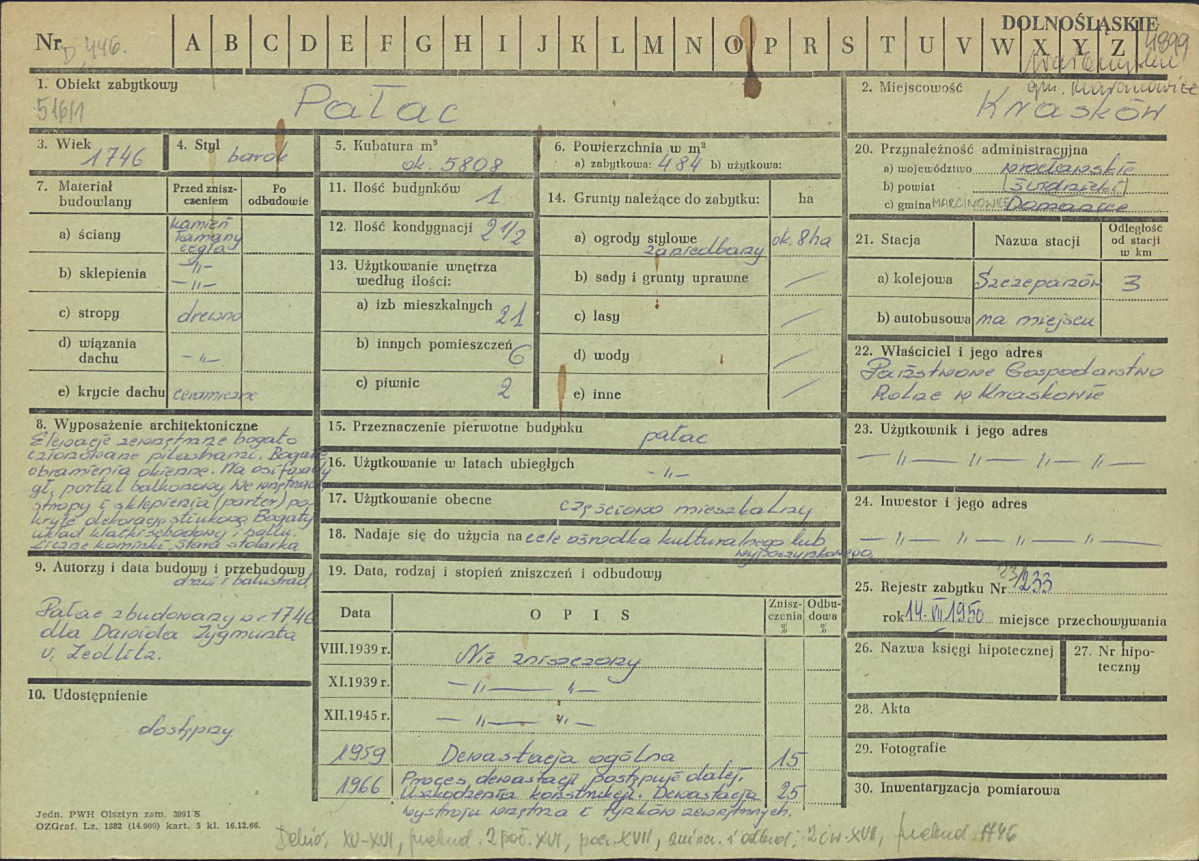 DOLNOŚLĄSKIE
Nr D, 446. A B C D E F G H I J K L M N O P R S T U V W X Y Z 4899
1. Obiekt zabytkowy
516/1
Pałac
2. Miejscowość
gm. Marcinowice
Krasków
3. Wiek
1746
4. Styl
barok
5. Kubatura m³
ok. 5808
6. Powierzchnia w m²
a) zabytkowa: 484 b) użytkowa:
7. Materiał budowlany
Przed zniszczeniem
Po odbudowie
a) ściany
kamień
łamany
cegła
b) sklepienia
—„—
—„—
c) stropy
drewno
d) wiązania dachu
—„—
e) krycie dachu ceramiczne
11. Ilość budynków
1
12. Ilość kondygnacji 2 1/2
13. Użytkowanie wnętrza
według ilości:
a) izb mieszkalnych 21
b) innych pomieszczeń 6
c) piwnic 2
14. Grunty należące do zabytku: ha
a) ogrody stylowe
zaniedbany
ok. 8ha
b) sady i grunty uprawne
c) lasy
d) wody
e) inne
20. Przynależność administracyjna
a) województwo wrocławskie
b) powiat [świdnicki]
c) gmina MARCINOWICE Domanice
21. Stacja
Nazwa stacji
Odległość
od stacji
w km
a) kolejowa Szczepanów 3
b) autobusowa na miejscu
22. Właściciel i jego adres
Państwowe Gospodarstwo
Rolne w Kraskowie
8. Wyposażenie architektoniczne
Elewacje zewnętrzne bogato
członowane pilastrami. Bogate
obramienia okienne. Na osi fasady
gł. portal balkonowy. We wnętrzach
stropy i sklepienia (parter) po-
kryte dekoracją stiukową. Bogaty
układ klatki schodowej i hallu.
Liczne kominki. Stara stolarka
drzwi i balustrad
15. Przeznaczenie pierwotne budynku
pałac
16. Użytkowanie w latach ubiegłych
—„—
17. Użytkowanie obecne
częściowo mieszkalny
18. Nadaje się do użycia na cele ośrodka kulturalnego lub
wypoczynkowego
23. Użytkownik i jego adres
— „ — „ — „ — „ —
24. Inwestor i jego adres
— „ — „ — „ — „ —
9. Autorzy i data budowy i przebudowy
Pałac zbudowany w r 1746
dla Dawida Zygmunta
v. Zedlitz.
10. Udostępnienie
dostępny
19. Data, rodzaj i stopień zniszczeń i odbudowy
Data
O P I S
Zniszczenia %
Odbudowa %
VIII.1939 r. Nie zniszczony
XI.1939 r. —„— „—
XII.1945 r. —„— „—
1959 Dewastacja ogólna 15
1966 Proces dewastacji postępuje dalej.
Uszkodzenia konstrukcji. Dewastacja 25
wystroju wnętrza i tynków zewnętrznych.
25. Rejestr zabytku Nr 23/233
rok 14. VII. 1950 miejsce przechowywania
26. Nazwa księgi hipotecznej
27. Nr hipoteczny
28. Akta
29. Fotografie
30. Inwentaryzacja pomiarowa
Jedn. PWH Olsztyn zam. 3991 S
OZGraf. Lz. 1882 (14.000) kart. 5 kl. 16.12.66.
XV-XVI, przebud. 2 poł. XVI, pocz. XVII, 2 ćw. XVII, przebud. 1746